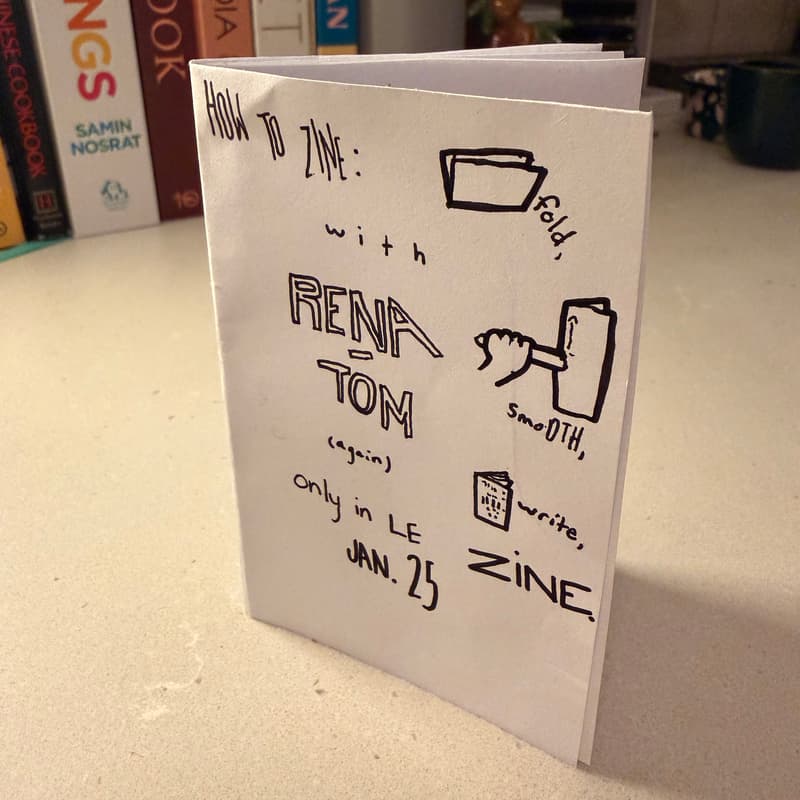 HOW TO ZINE:
with
RENA
-
TOM
(again)
only in LE
JAN. 25
fold,
smooTH,
write,
ZiNE.
NESE COOKBOOK
NGS
SAMIN
NOSRAT
OOK
DIA
ET
AN